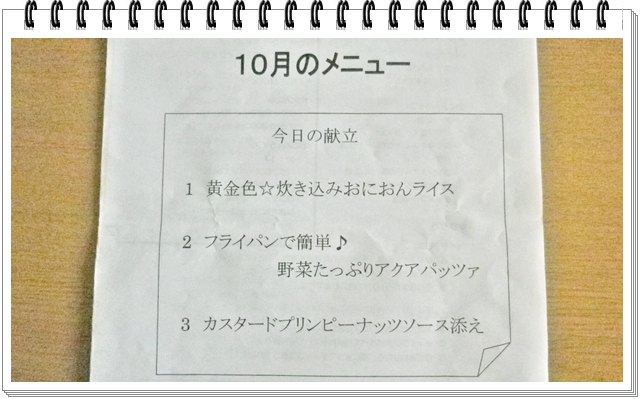 10月のメニュー
今日の献立
1 黄金色☆炊き込みおにおんライス
2 フライパンで簡単♪
野菜たっぷりアクアパッツァ
3 カスタードプリンピーナッツソース添え